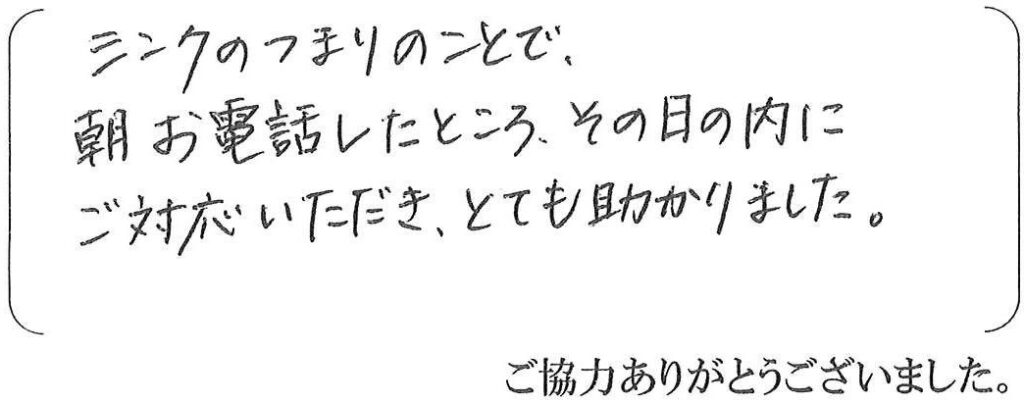 シンクのつまりのことで、
朝お電話したところ、その日の内に
ご対応いただき、とても助かりました。
ご協力ありがとうございました。